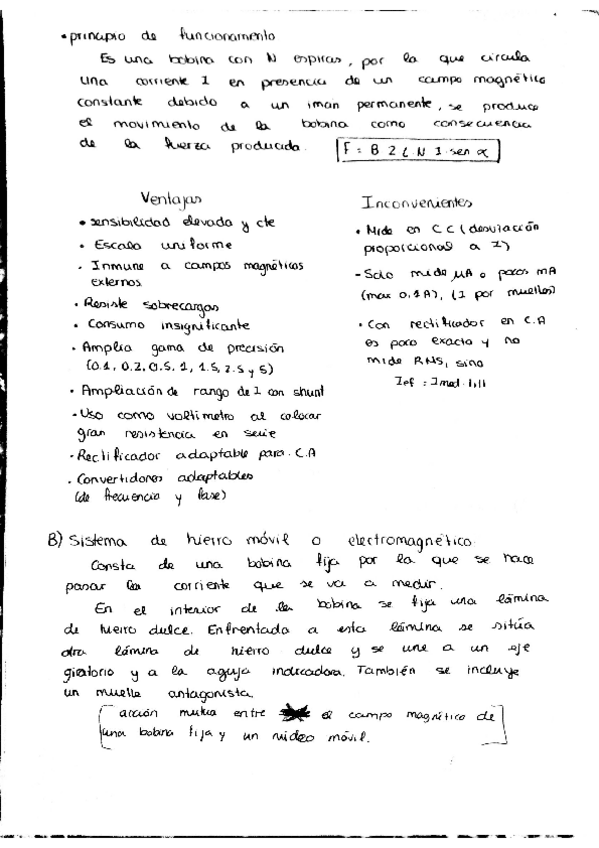 • principio de funcionamento
Es una bobina con N espiras, por la que circula
una corriente I en presencia de un campo magnético
constante debido a un iman permanente, se produce
el movimiento de la bobina como consecuencia
de la fuerza producida. F = B 2 L N I sen α
Ventajas
• sensibilidad elevada y cte
• Escala uniforme
• Inmune a campos magnéticos
externos.
• Resiste sobrecargas
• Consumo insignificante
• Amplia gama de precisión
(0.1, 0.2, 0.5, 1, 1.5, 2.5 y 5)
• Ampliación de rango de I con shunt
- Uso como voltimetro al colocar
gran resistencia en serie
- Rectificador adaptable para C.A
• Convertidores adaptables
(de frecuencia y fase)
Inconvenientes
• Mide en CC (desviación
proporcional a I)
- Solo mide μA o pocos mA
(max 0,1A), (I por muelles)
• Con rectificador en C.A
es poco exacta y no
mide RMS, sino
Ief = Imed · 1,11
B) Sistema de hierro móvil o electromagnético.
Consta de una bobina fija por la que se hace
pasar la corriente que se va a medir.
En el interior de la bobina se fija una lámina
de hierro dulce. Enfrentada a esta lámina se sitúa
otra lámina de hierro dulce y se une a un eje
giratorio y a la aguja indicadora. También se incluye
un muelle antagonista.
[acción mutua entre el campo magnético de
una bobina fija y un nucleo móvil.]